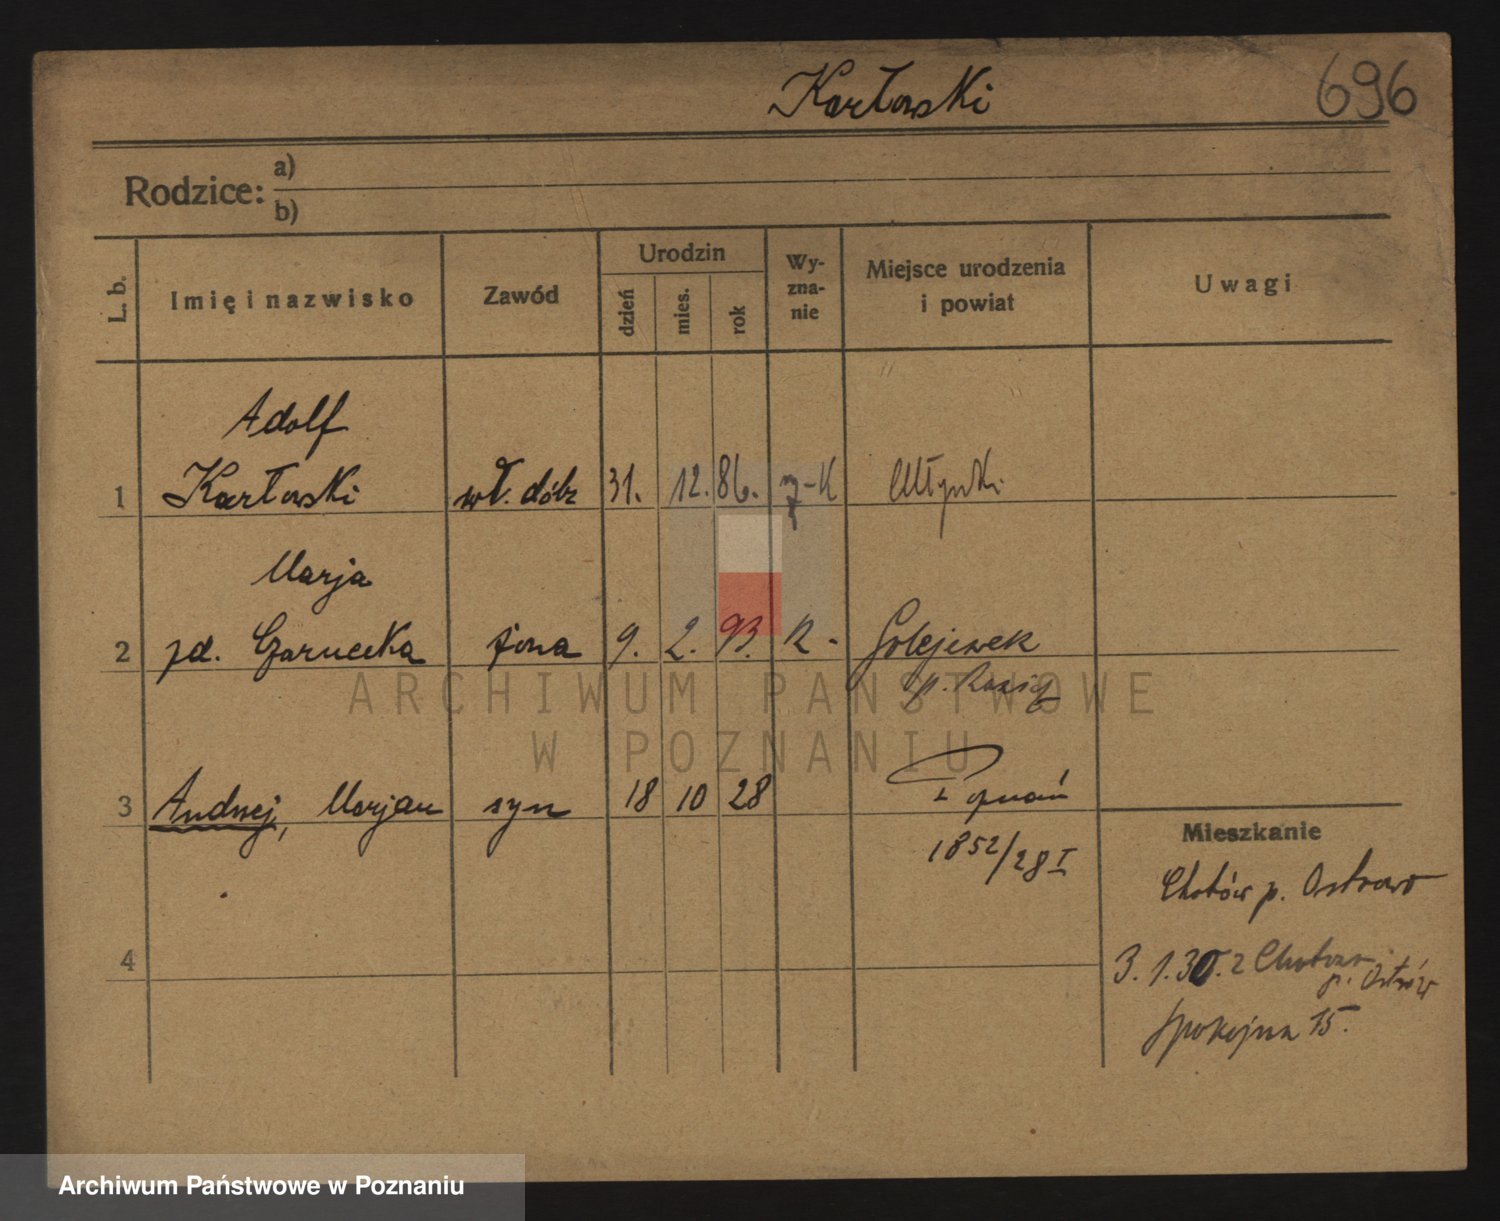 Karłowski
696
Rodzice: a)
b)
L. b.
Imię i nazwisko
Zawód
Urodzin
dzień
mies.
rok
Wy-
zna-
nie
Miejsce urodzenia
i powiat
Uwagi
Adolf
1 Karłowski wł. dóbr 31. 12. 86. K
Marja
2 Czarnecka żona 9. 2. 93. K - Golejewek
p.
ARCHIWUM PAŃSTWOWE
W POZNANIU
3 Andrzej, Marjan syn 18 10 28 Poznań
1852/28 I
Mieszkanie
Chotów p. Ostrowo
4
3.1.30. z p. Ostrów
Spokojna 15.
Archiwum Państwowe w Poznaniu